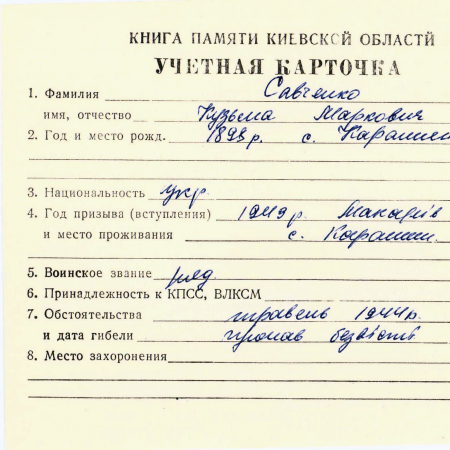 КНИГА ПАМЯТИ КИЕВСКОЙ ОБЛАСТИ
УЧЕТНАЯ КАРТОЧКА
1. Фамилия Савченко
имя, отчество Кузьма Маркович
2. Год и место рожд. 1898 р. с. Карашин
3. Национальность укр.
4. Год призыва (вступления) р. Макарів
и место проживания с. Карашин.
5. Воинское звание ряд.
6. Принадлежность к КПСС, ВЛКСМ
7. Обстоятельства травень 1944 р.
и дата гибели пропав безвісті
8. Место захоронения